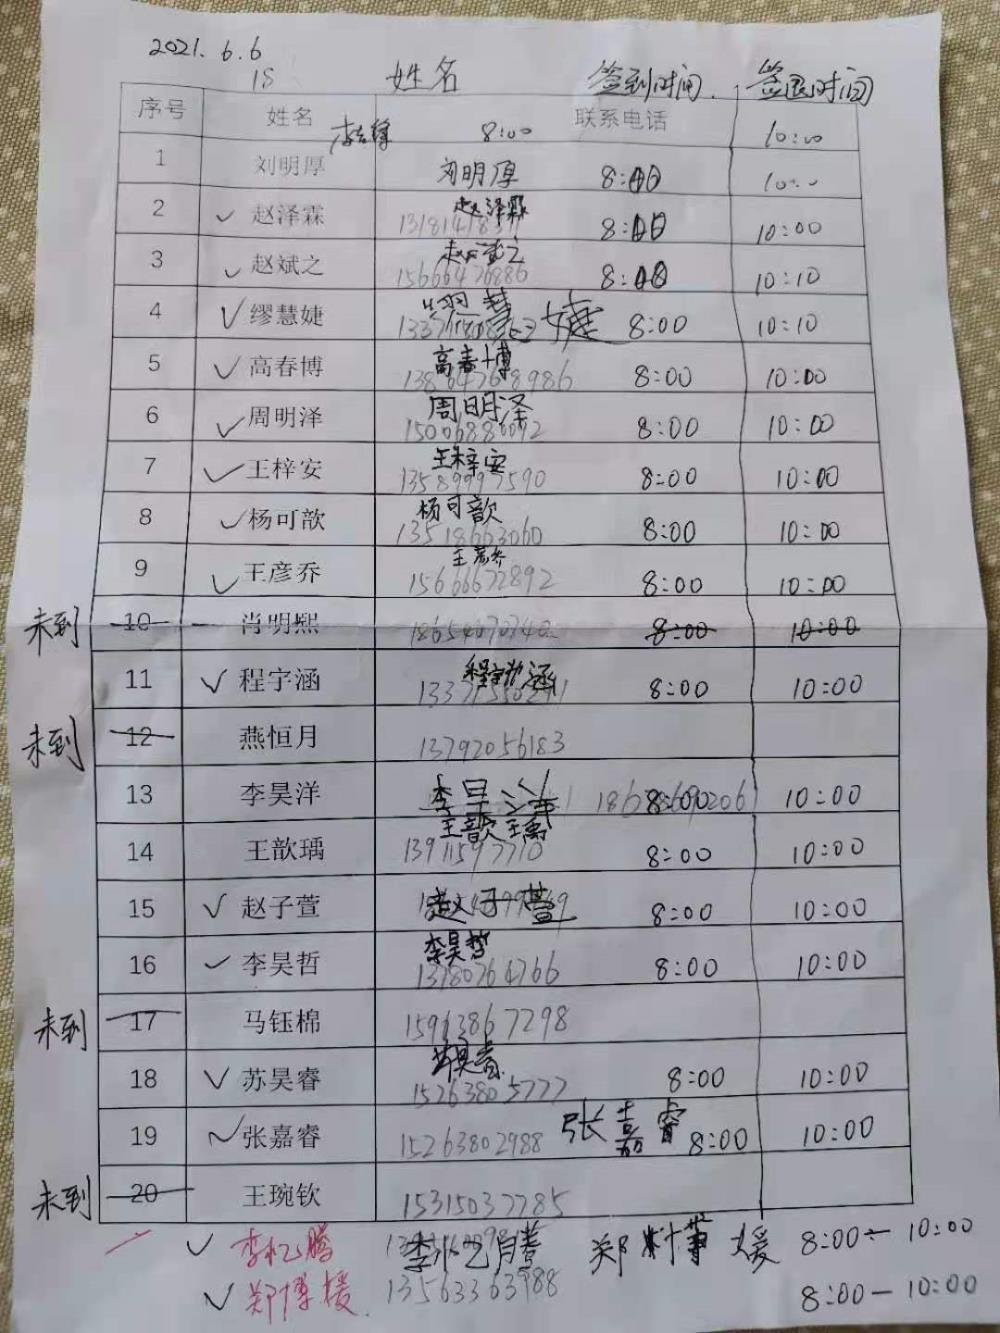 2021.6.6
18 姓名 签到时间 签退时间
序号 姓名 联系电话
8:00 10:00
1 刘明厚 刘明厚 8:00 10:00
2 赵泽霖 赵泽霖 8:00 10:00
3 赵斌之 赵斌之 15666476886 8:00 10:10
4 缪慧婕 缪慧婕 8:00 10:10
5 高春博 高春博 8:00 10:00
6 周明泽 周明泽 15006880092 8:00 10:00
7 王梓安 王梓安 13589997590 8:00 10:00
8 杨可歆 杨可歆 13518663060 8:00 10:00
9 王彦乔 王彦乔 15666672892 8:00 10:00
未到 10 肖明熙 8:00 10:00
11 程宇涵 程宇涵 8:00 10:00
未到 12 燕恒月 13792056183
13 李昊洋 李昊洋 10:00
14 王歆瑀 王歆瑀 13911597710 8:00 10:00
15 赵子萱 赵子萱 8:00 10:00
16 李昊哲 李昊哲 13780764766 8:00 10:00
未到 17 马钰棉 15963867298
18 苏昊睿 苏昊睿 15263805777 8:00 10:00
19 张嘉睿 15263802988 张嘉睿 8:00 10:00
未到 20 王琬钦 15315037785
李忆腾 李忆腾 郑博媛 8:00-10:00
郑博媛 13563363988 8:00-10:00